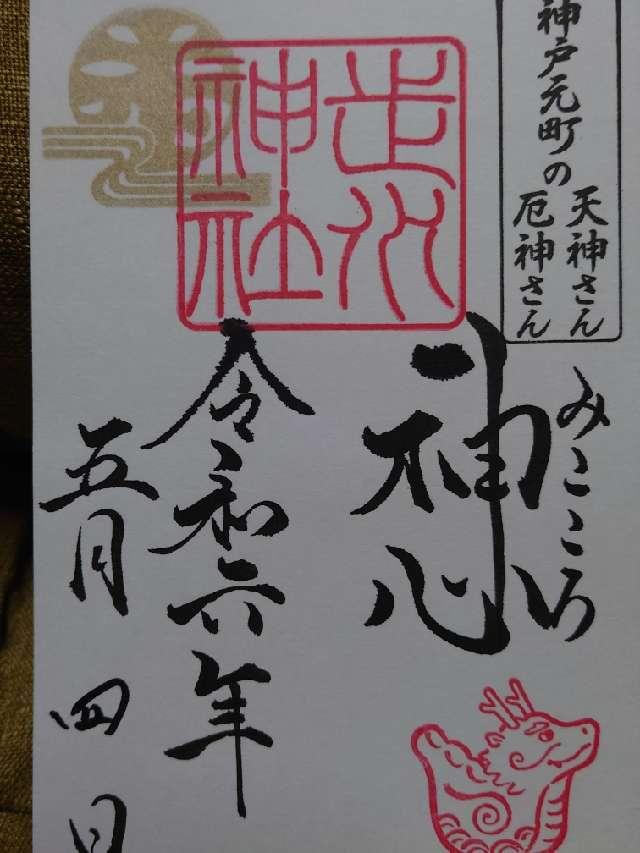 神戸元町の
天神さん
厄神さん
みこころ
神心
走水
神社
令和六年
五月四日